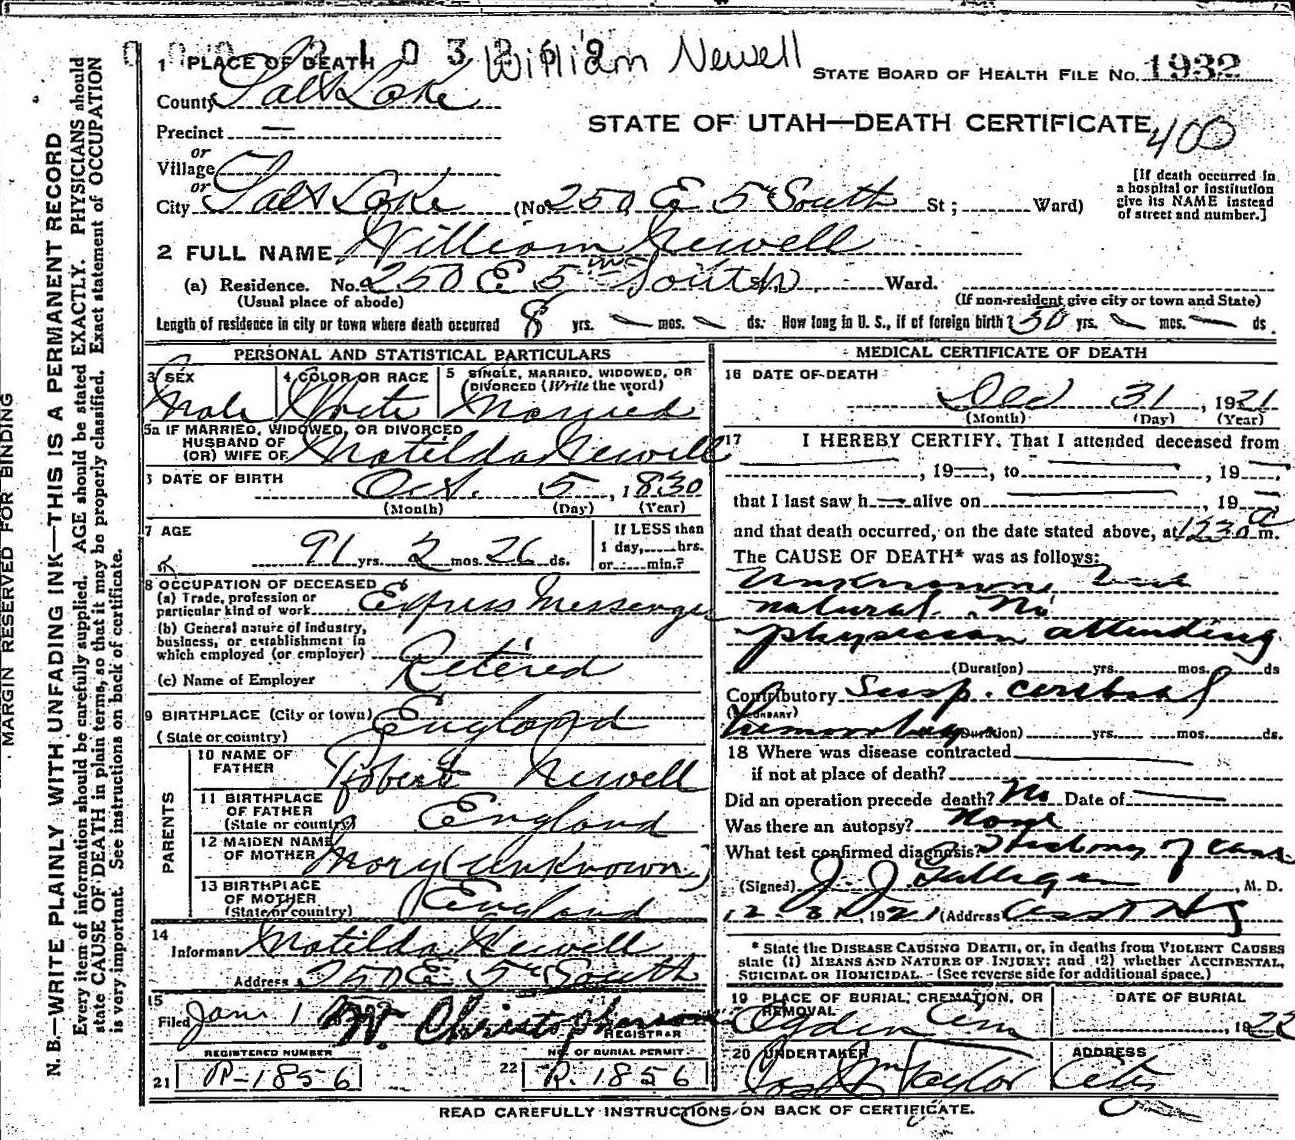 William Newell
STATE BOARD OF HEALTH FILE No. 1932
1 PLACE OF DEATH
County Salt Lake
STATE OF UTAH—DEATH CERTIFICATE
400
Precinct —
or
Village
or
City Salt Lake (No. 250 E 5th South St; Ward)
[If death occurred in
a hospital or institution
give its NAME instead
of street and number.]
2 FULL NAME William Newell
(a) Residence. No. 250 E 5th South St. Ward.
(Usual place of abode) (If non-resident give city or town and State)
Length of residence in city or town where death occurred 8 yrs. — mos. — ds. How long in U. S., if of foreign birth? 50 yrs. — mos. — ds.
PERSONAL AND STATISTICAL PARTICULARS
3 SEX 4 COLOR OR RACE 5 SINGLE, MARRIED, WIDOWED, OR
DIVORCED (Write the word)
Male White Married
5a IF MARRIED, WIDOWED, OR DIVORCED
HUSBAND OF
(OR) WIFE OF Matilda Newell
6 DATE OF BIRTH Oct. 5, 1830
(Month) (Day) (Year)
7 AGE If LESS than
91 yrs. 2 mos. 26 ds. 1 day, hrs.
or min.?
8 OCCUPATION OF DECEASED
(a) Trade, profession or
particular kind of work Express Messenger
(b) General nature of industry,
business, or establishment in
which employed (or employer) Retired
(c) Name of Employer
9 BIRTHPLACE (City or town)
(State or country) England
PARENTS
10 NAME OF
FATHER Robert Newell
11 BIRTHPLACE
OF FATHER
(State or country) England
12 MAIDEN NAME
OF MOTHER Mary (unknown)
13 BIRTHPLACE
OF MOTHER
(State or country) England
14
Informant Matilda Newell
Address 250 E 5th South
15
Filed Jan 1 W. Christopherson
REGISTRAR
REGISTERED NUMBER NO. OF BURIAL PERMIT
21 R-1856 22 R. 1856
MEDICAL CERTIFICATE OF DEATH
16 DATE OF DEATH
Dec 31, 1921
(Month) (Day) (Year)
17 I HEREBY CERTIFY, That I attended deceased from
, 19—, to , 19
that I last saw h— alive on , 19
and that death occurred, on the date stated above, at 1230 a m.
The CAUSE OF DEATH* was as follows:
Unknown, but
natural. No
physician attending
(Duration) yrs. mos. ds
Contributory Susp. cerebral
(SECONDARY)
hemorrhage (Duration) yrs. mos. ds.
18 Where was disease contracted
if not at place of death?
Did an operation precede death? No Date of
Was there an autopsy? None
What test confirmed diagnosis? History of case
(Signed) J. J. Galligan, M. D.
12-31, 1921 (Address
* State the DISEASE CAUSING DEATH, or, in deaths from VIOLENT CAUSES
state (1) MEANS AND NATURE OF INJURY; and (2) whether ACCIDENTAL,
SUICIDAL OR HOMICIDAL. (See reverse side for additional space.)
19 PLACE OF BURIAL, CREMATION, OR
REMOVAL DATE OF BURIAL
Ogden Cem , 1922
20 UNDERTAKER ADDRESS
Taylor City
READ CAREFULLY INSTRUCTIONS ON BACK OF CERTIFICATE.
MARGIN RESERVED FOR BINDING
N. B.—WRITE PLAINLY WITH UNFADING INK—THIS IS A PERMANENT RECORD
Every item of information should be carefully supplied. AGE should be stated EXACTLY. PHYSICIANS should
state CAUSE OF DEATH in plain terms, so that it may be properly classified. Exact statement of OCCUPATION
is very important. See instructions on back of certificate.